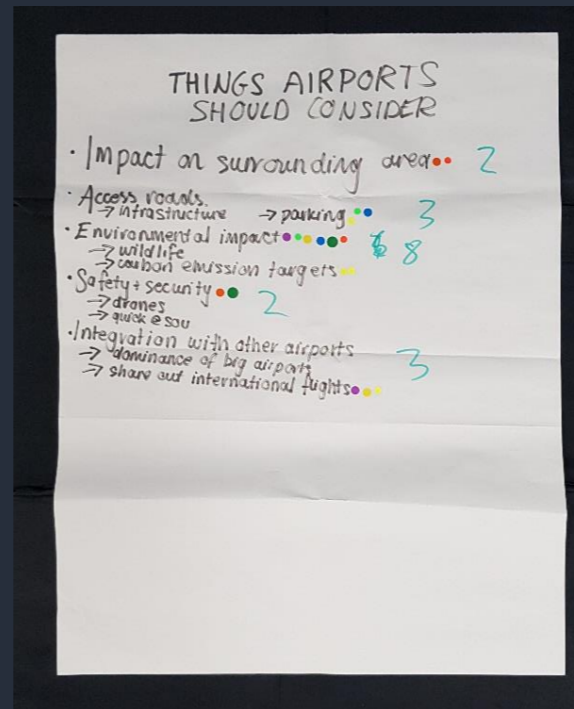 THINGS AIRPORTS
SHOULD CONSIDER
• Impact on surrounding area 2
• Access roads.
→ infrastructure → parking 3
• Environmental impact 8
→ wildlife
→ carbon emission targets
• Safety + security 2
→ drones
→ quick @ SOU
• Integration with other airports
→ dominance of big airports 3
→ share out international flights